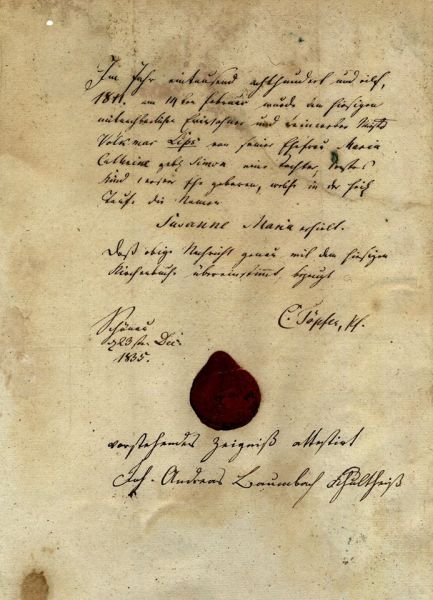 Im Jahr eintausend achthundert und eilf,
1811. am 14ten Februar wurde dem hiesigen
Einwohner und
Volkmar Lips von seiner Ehefrau Maria
geb. Simon eine Tochter, erstes
Kind erster Ehe geboren, welche in der heil.
Taufe die Namen
Susanne Maria erhielt.
Daß obige Nachricht genau mit dem hiesigen
Kirchenbuche übereinstimmt bezeugt
Schönau
d. 23ten Dec.
1835.
C. Töpfer, Pf.
Vorstehendes Zeigniß attestirt
Joh. Andreas Baumbach Schultheiß